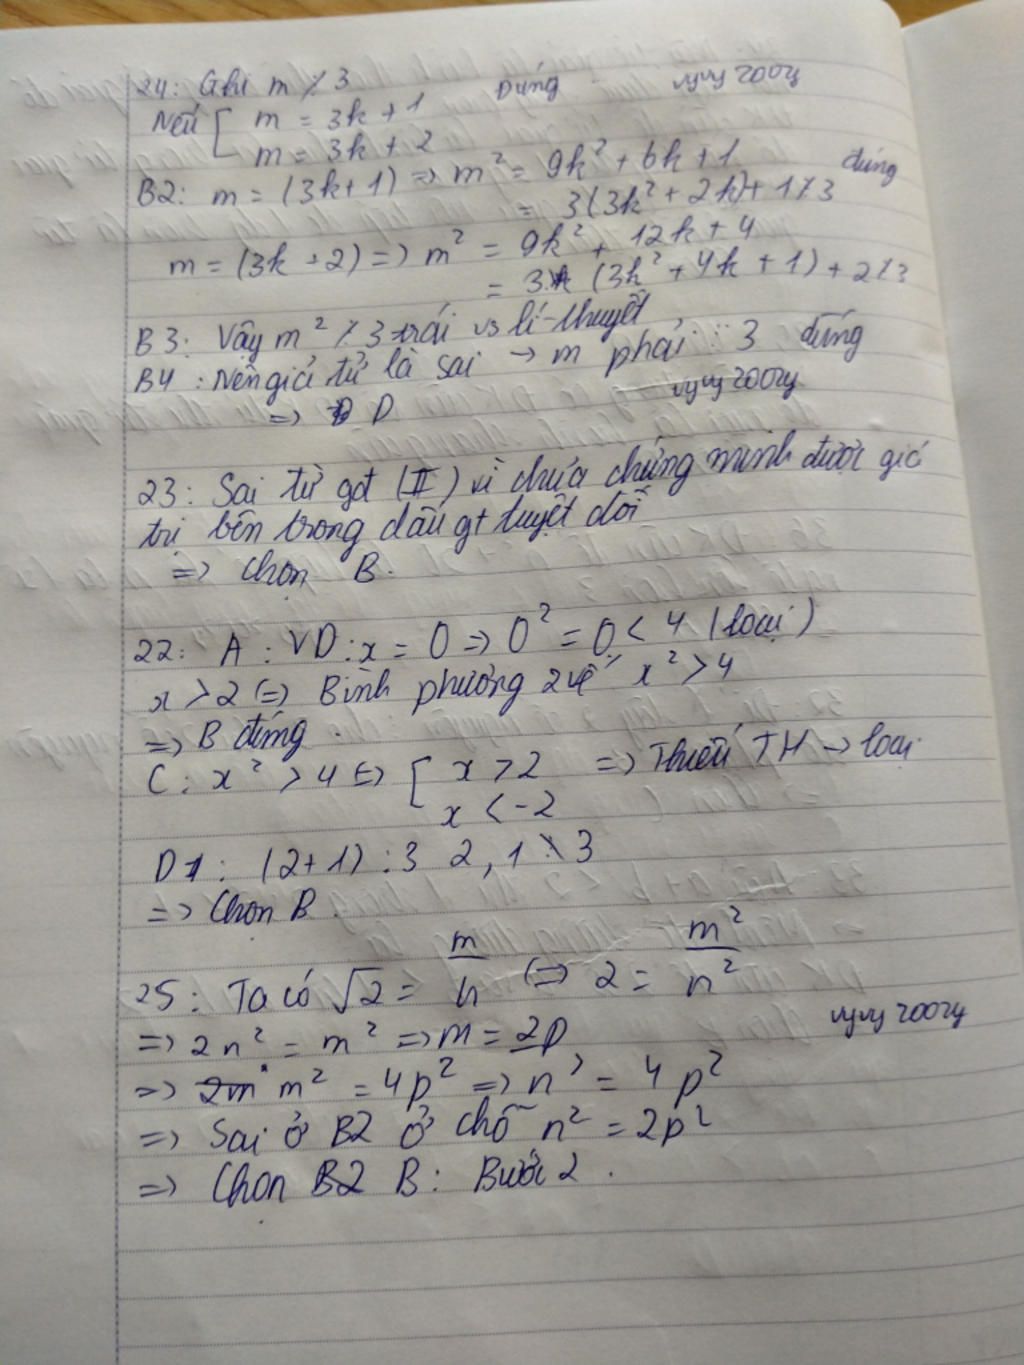 24: Ghi m ⋮̸ 3 Đúng vyvy2002y
Nếu [ m = 3k + 1
m = 3k + 2
B2: m = (3k+1) => m² = 9k² + 6k + 1 đúng
= 3(3k² + 2k) + 1 ⋮̸ 3
m = (3k + 2) => m² = 9k² + 12k + 4
= 3 (3k² + 4k + 1) + 2 ⋮̸ 3
B3: Vậy m² ⋮̸ 3 trái vs lí thuyết
B4: Nên giả tử là sai → m phải ⋮ 3 đúng
=> D vyvy2002y
23: Sai từ gđ (II) vì chưa chứng minh được giá
trị bên trong dấu gt tuyệt đối
=> Chọn B.
22: A: VD: x = 0 => 0² = 0 < 4 (loại)
x > 2 (=> Bình phương 2 vế x² > 4
=> B đúng.
C: x² > 4 <=> [ x > 2 => Thiếu TH → loại
x < -2
D: (2+1) ⋮ 3 2, 1 ⋮̸ 3
=> Chọn B.
25: Ta có √2 = m/n <=> 2 = m²/n²
vyvy2002y
=> 2n² = m² => m = 2p
=> m² = 4p² => n² = 4p²
=> Sai ở B2 ở chỗ n² = 2p²
=> Chọn B: Bước 2.